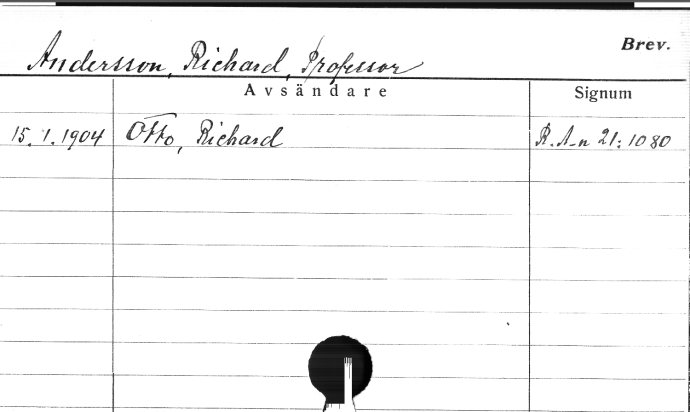 Brev.
Andersson, Richard, Professor
Avsändare Signum
15.1.1904 Otto, Richard R.A-n 21:1080